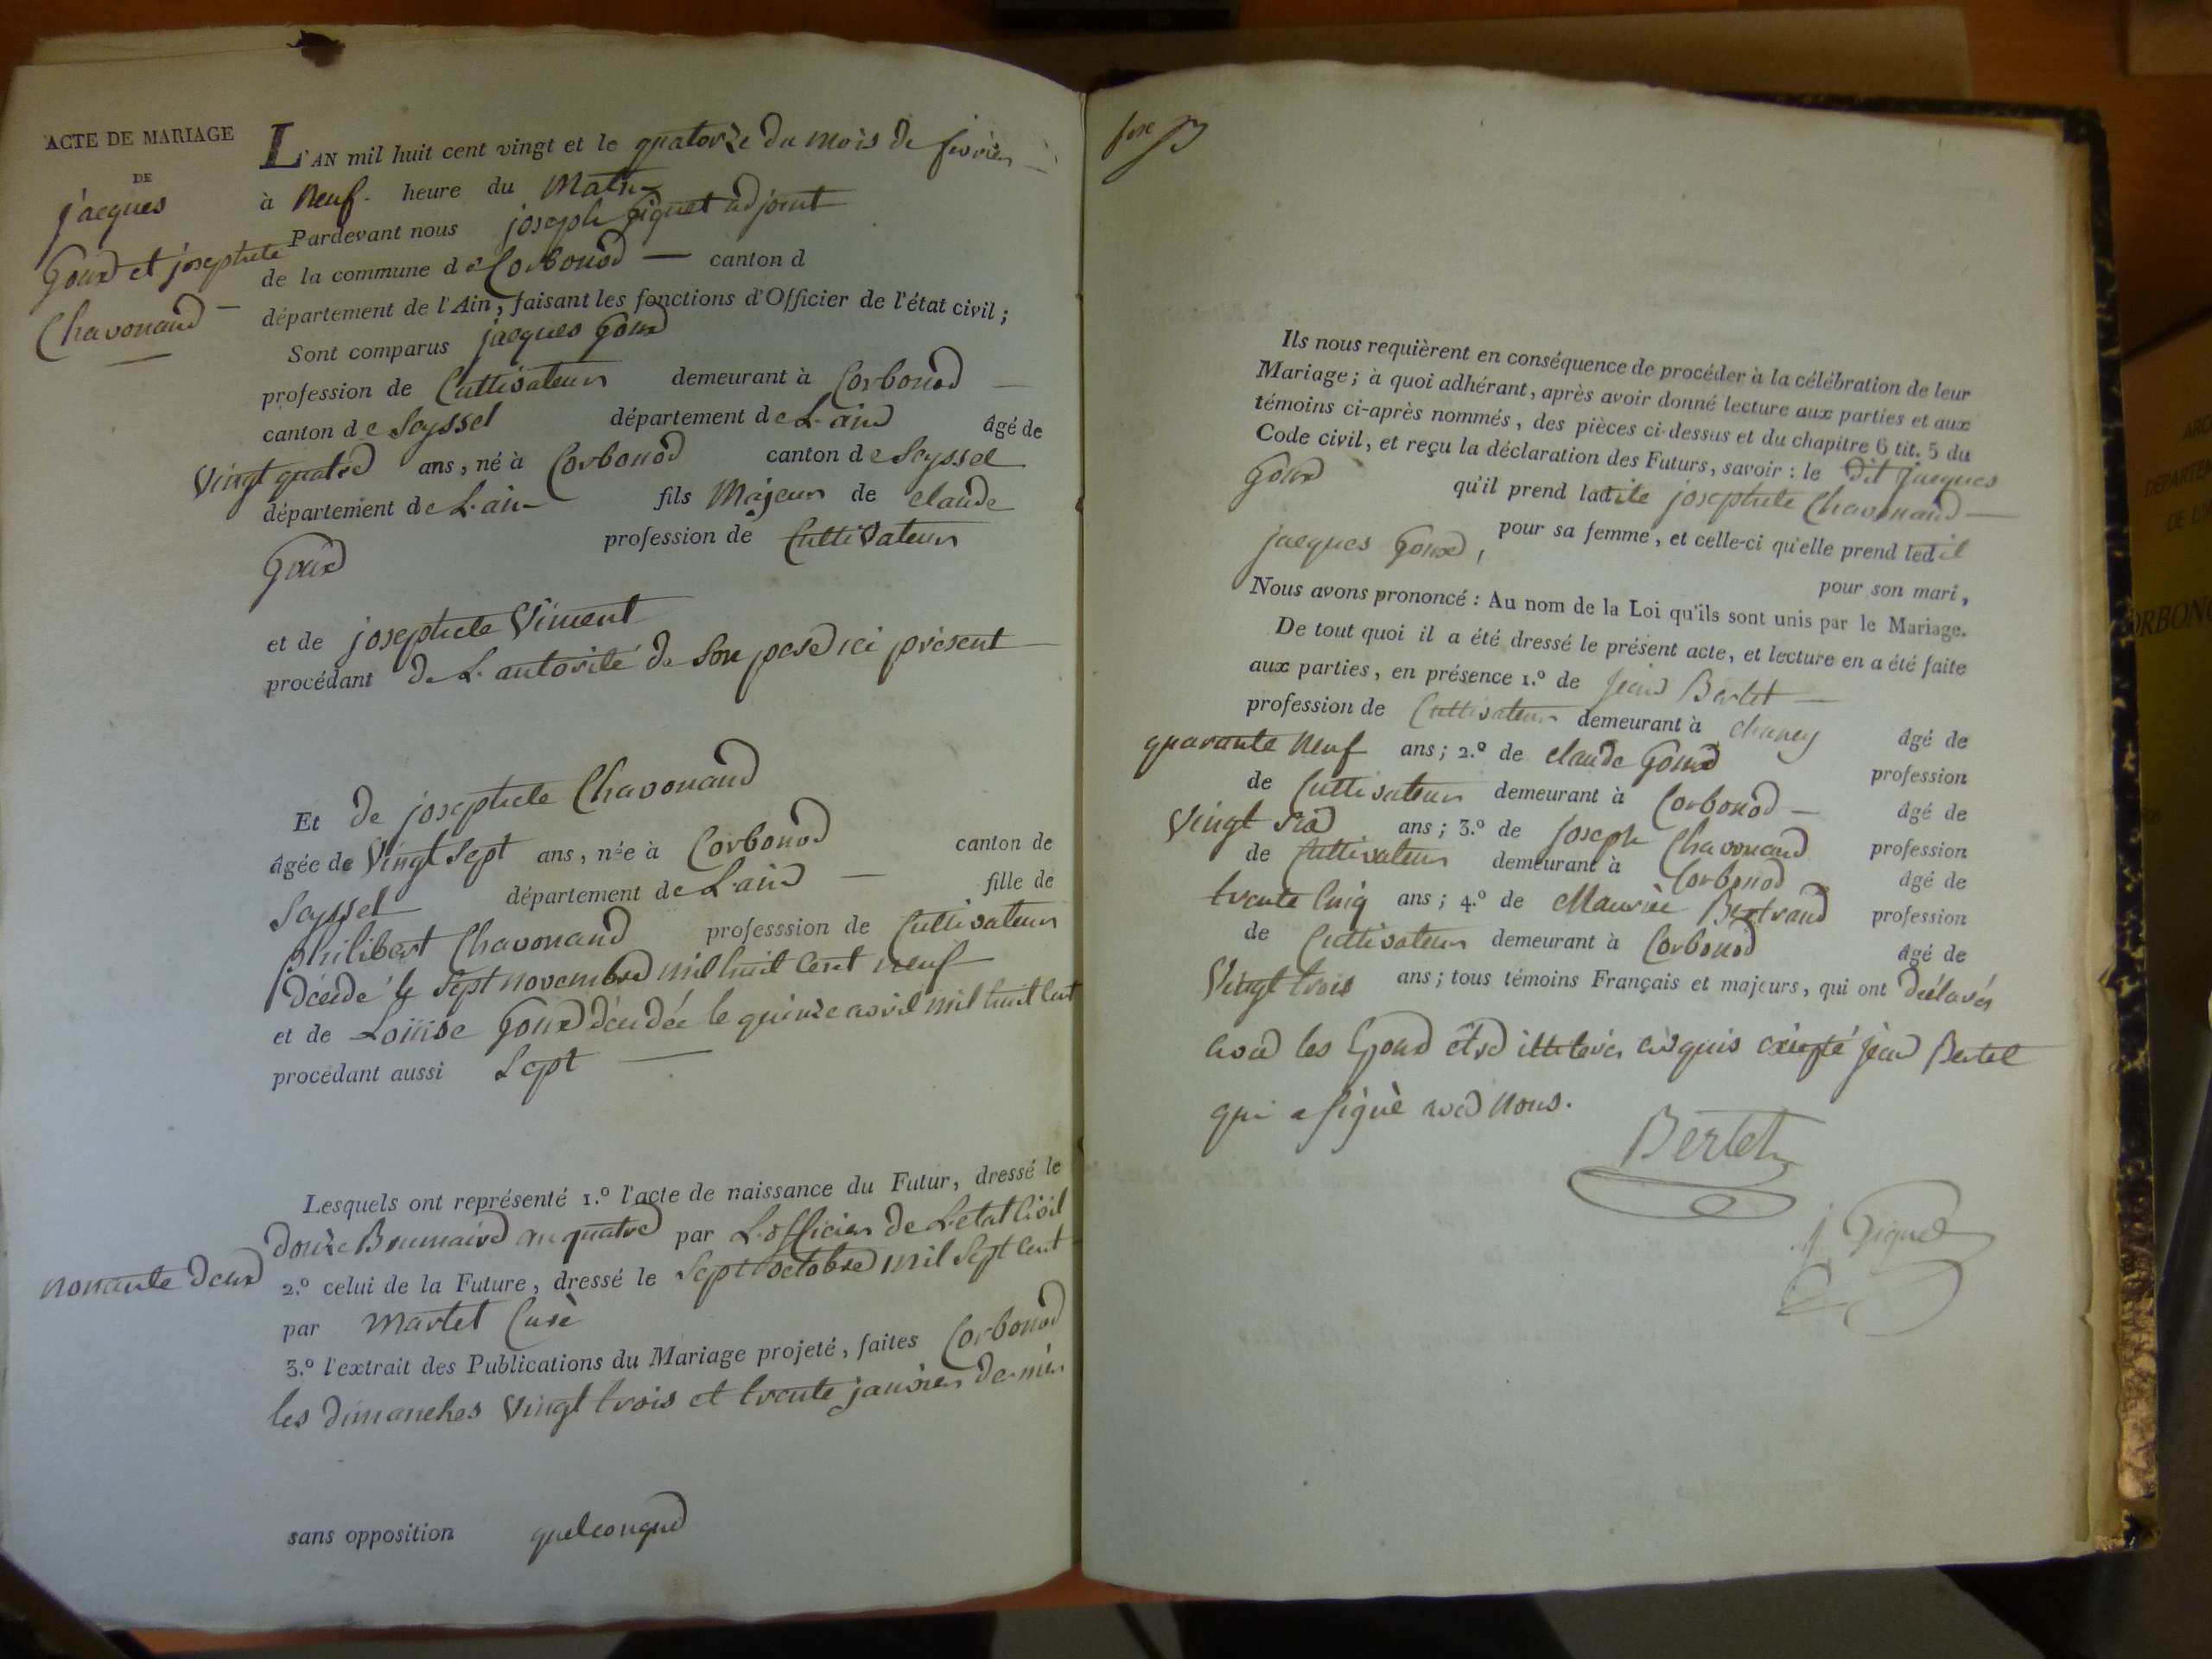 ACTE DE MARIAGE
DE
jacques
Goux et josephete
Chavonand
L'AN mil huit cent vingt et le quatorze du mois de fevrier
à Neuf heure du Matin
Pardevant nous joseph Giguet adjoint
de la commune de Corbonod — canton d
département de l'Ain, faisant les fonctions d'Officier de l'état civil ;
Sont comparus jacques Goux
profession de Cultivateur demeurant à Corbonod —
canton de Seyssel département de L'ain âgé de
Vingt quatre ans, né à Corbonod canton de Seyssel
département de L'ain fils Majeur de claude
Goux profession de Cultivateur
et de josephete Viment
procédant de L'autorité de Son pere ici présent
Et de josephete Chavonand
âgée de Vingt Sept ans, née à Corbonod canton de
Seyssel département de L'ain — fille de
Philibert Chavonand professsion de Cultivateur
décédé le Sept novembre mil huit Cent neuf
et de Louise Goux décedée le quinze avril mil huit Cent
procédant aussi Sept —
Lesquels ont représenté 1.º l'acte de naissance du Futur, dressé le
douze Brumaire an quatre par L'officier de L'etat Civil
2.º celui de la Future, dressé le Sept octobre mil Sept Cent
nonante deux
par Martel Curè
3.º l'extrait des Publications du Mariage projeté, faites Corbonod
les dimanches Vingt trois et trente janvier dernier
sans opposition quelconque
Ils nous requièrent en conséquence de procéder à la célébration de leur
Mariage ; à quoi adhérant, après avoir donné lecture aux parties et aux
témoins ci-après nommés, des pièces ci-dessus et du chapitre 6 tit. 5 du
Code civil, et reçu la déclaration des Futurs, savoir : le dit jacques
Goux qu'il prend ladite josephete Chavonand —
pour sa femme, et celle-ci qu'elle prend ledit
jacques Goux, pour son mari,
Nous avons prononcé : Au nom de la Loi qu'ils sont unis par le Mariage.
De tout quoi il a été dressé le présent acte, et lecture en a été faite
aux parties, en présence 1.º de jean Bertet —
profession de Cultivateur demeurant à chaney âgé de
quarante Neuf ans ; 2.º de claude Goux profession
de Cultivateur demeurant à Corbonod — âgé de
Vingt ans ; 3.º de Joseph Chavonand profession
de Cultivateur demeurant à Corbonod âgé de
trente Cinq ans ; 4.º de Maurice Bertrand profession
de Cultivateur demeurant à Corbonod âgé de
Vingt trois ans ; tous témoins Français et majeurs, qui ont déclarés
avec les Goux être illiterés requis excepté jean Bertet
qui a signè avec Nous.
Bertet
j Giguet